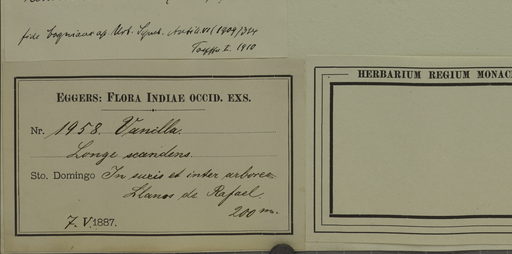 fide Cogniaux ap. Urb. Symb. Antill. VI (1909) 324
1910
EGGERS: FLORA INDIAE OCCID. EXS.
Nr. 1958. Vanilla.
Longe scandens.
Sto. Domingo In et inter arbores.
Llanos de Rafael.
200 m.
7. V. 1887.
HERBARIUM REGIUM MONAC